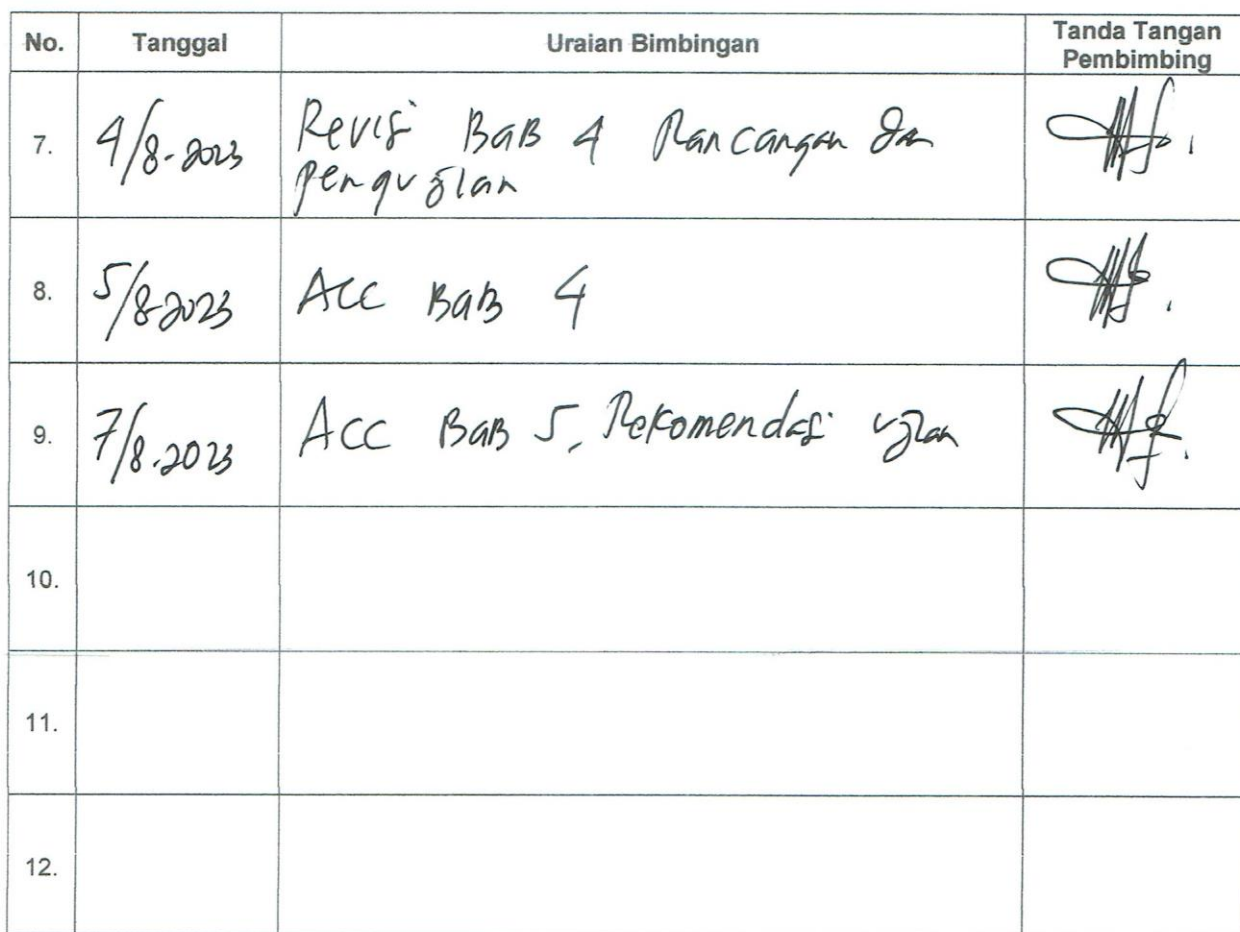 No. Tanggal Uraian Bimbingan Tanda Tangan
Pembimbing
7. 4/8-2023 Revisi BaB 4 Rancangan dan
pengujian
8. 5/8-2023 Acc BaB 4
9. 7/8.2023 Acc BaB 5, Rekomendasi ujian
10.
11.
12.